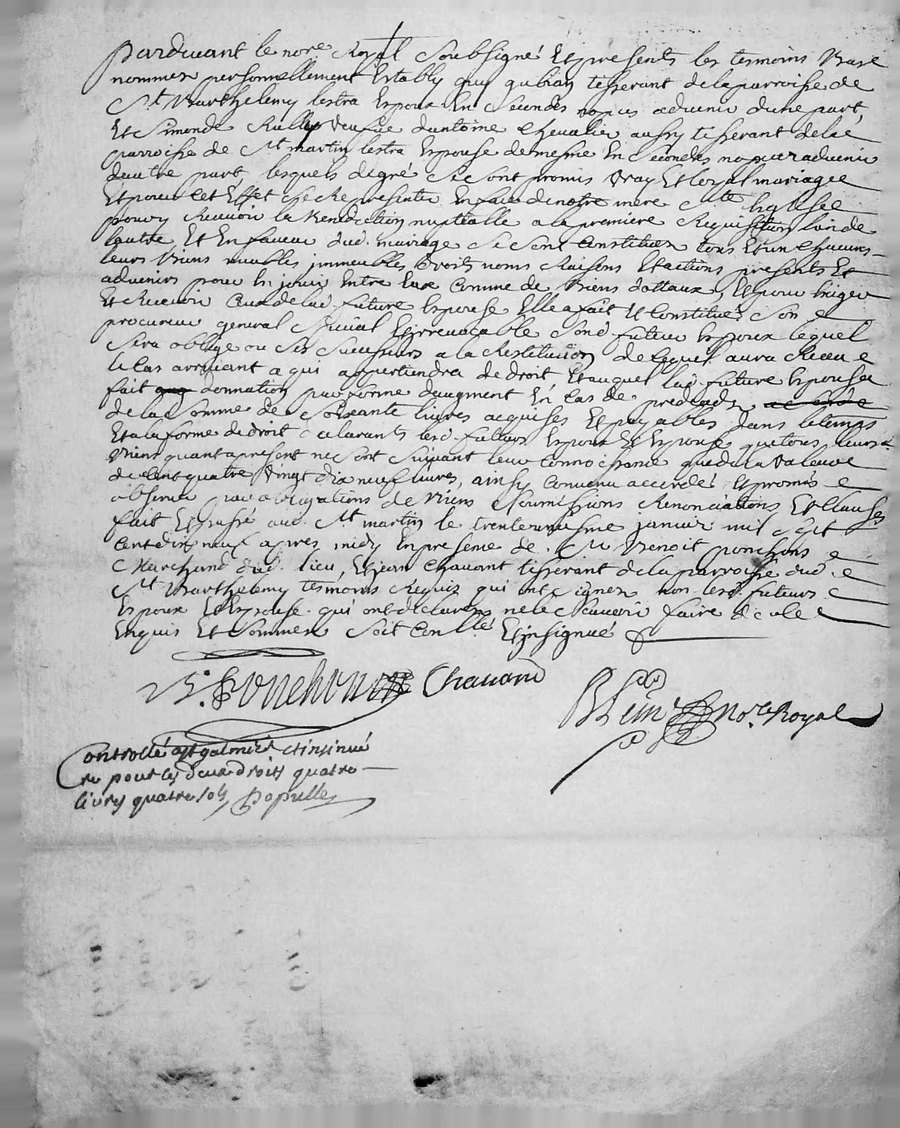 Pardevant le nore Royal Soubsigné Et presents les tesmoins Bas
nommes personnellement Estably guy gubian tisserant de la parroisse de
St Barthelemy lestra Espoux En Secondes nopces advenir dune part,
Et Simonde Rulle veufve dantoine Chevalier aussy tisserant de lad
parroisse de St martin lestra Espouse de mesme En secondes nopces advenir
dautre part lesquels de gré se sont promis vray Et loyal mariage
Et pour cet Effet se Representer En face de notre mere Ste Esglise
pour y Recevoir la Benediction nuptialle a la premiere Requisition lun de
lautre Et En faveur dud. mariage se sont Constitues tous Et un chacuns
leurs Biens meubles jmmeubles droits noms Raisons Et actions presents Et
advenirs pour En jouir Entre Eux Comme de Biens dottaux, Et pour Exiger
Et Recevoir Ceux de lad future Espouse Elle a fait Et Constitué Son
procureur general Special Et irrevocable Sond futur Espoux lequel
Sera oblige ou Ses Successeurs a la Restitution de lequel aura Receu
le Cas arrivant a qui appartiendra de droit, Et auquel lad future Espouse
fait donnation par forme daugment En Cas de predeces
de la Somme de Soixante livres acquises Et payables dans le temps
Et a la forme de droit declarants lesd. futurs Espoux Et Espouse que tous leurs
Biens quant a present ne sont suivant leur connoissance que de la valeur
de Cent quatre vingt dix neuf livres, ainsy Convenu accordé Et promis
observer par obligations de Biens Soumissions Renonciations Et Clauses
fait Et passé aud. St martin le trente uniesme janvier mil sept
Cent dix neuf apres midy En presence de Mr Benoit ponchons
Marchand dud. lieu, Et jean chavant tisserant de la parroisse dud.
St Barthelemy tesmoins Requis qui ont signez non lesd. futurs
Espoux Et Espouse qui ont declarez ne le scavoir faire de ce
Enquis Et Sommes Soit Conllé Et insignué
Bt. Ponchon Chavand
not. Royal
Controllé a St galmier et insinué
re pour les deux droits quatre
livres quatre sols Populle